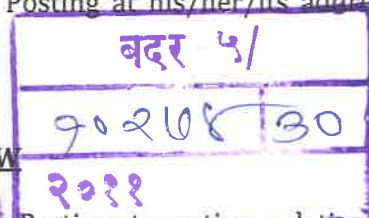 Posting at his/her/its
बदर ५/
१०२७४ ३०
W
२०११